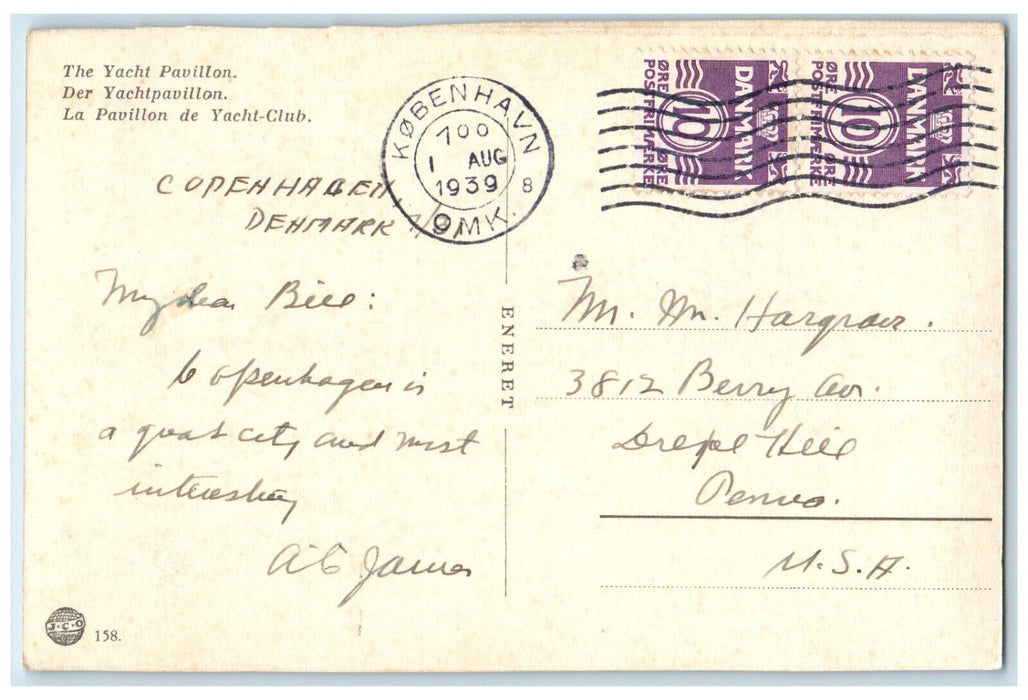 The Yacht Pavillon.
Der Yachtpavillon.
La Pavillon de Yacht-Club.
KØBENHAVN
7 00
1 AUG
1939 8
OMK.
DANMARK
10
ØRE
POSTFRIMÆRKE
DANMARK
10
ØRE
POSTFRIMÆRKE
COPENHAGEN,
DENMARK
My dear Bill:
Copenhagen is
a great city and most
interesting
James
ENERET
Mr. Wm. Hargrave.
3812 Berry Av.
Drexel Hill
Penna.
U.S.A.
J.C.O
158.